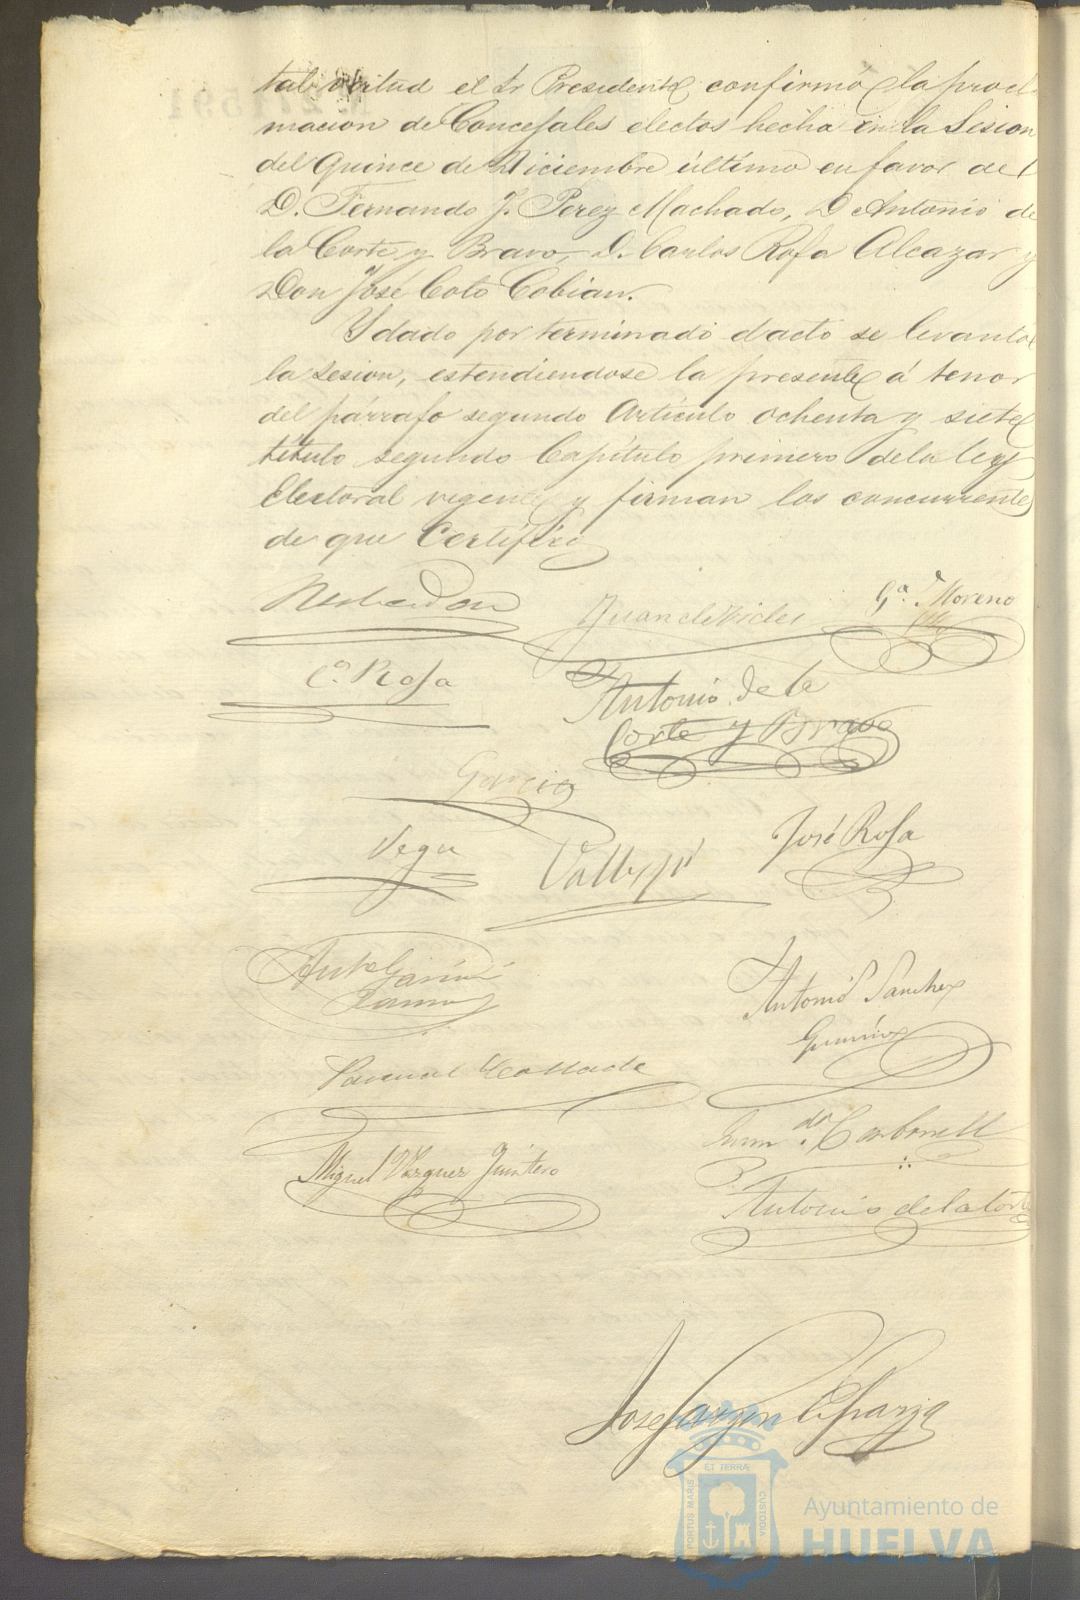 tal virtud el Sr Presidente confirmó la procl
macion de Concejales electos hecha en la Sesion
del quince de Diciembre último en favor de
D. Fernando J. Perez Machado, D Antonio de
la Corte y Bravo, D. Carlos Rofa Alcazar y
Don José Coto Cobian.
Y dado por terminado el acto se levantó
la sesion, estendiendose la presente á tenor
del párrafo segundo Artículo ochenta y siete
título segundo Capítulo primero de la ley
Electoral vigente y firman los concurrentes
de que Certifico
Gª. Moreno
Cº. Rofa
Antonio de la
Corte y Bravo
Garcia
Vega
José Rofa
Antonio Sanchez
Carbonell
Miguel Vazquez Quintero
Antonio de la Corte
José
PORTUS MARIS ET TERRÆ CUSTODIA
Ayuntamiento de
HUELVA